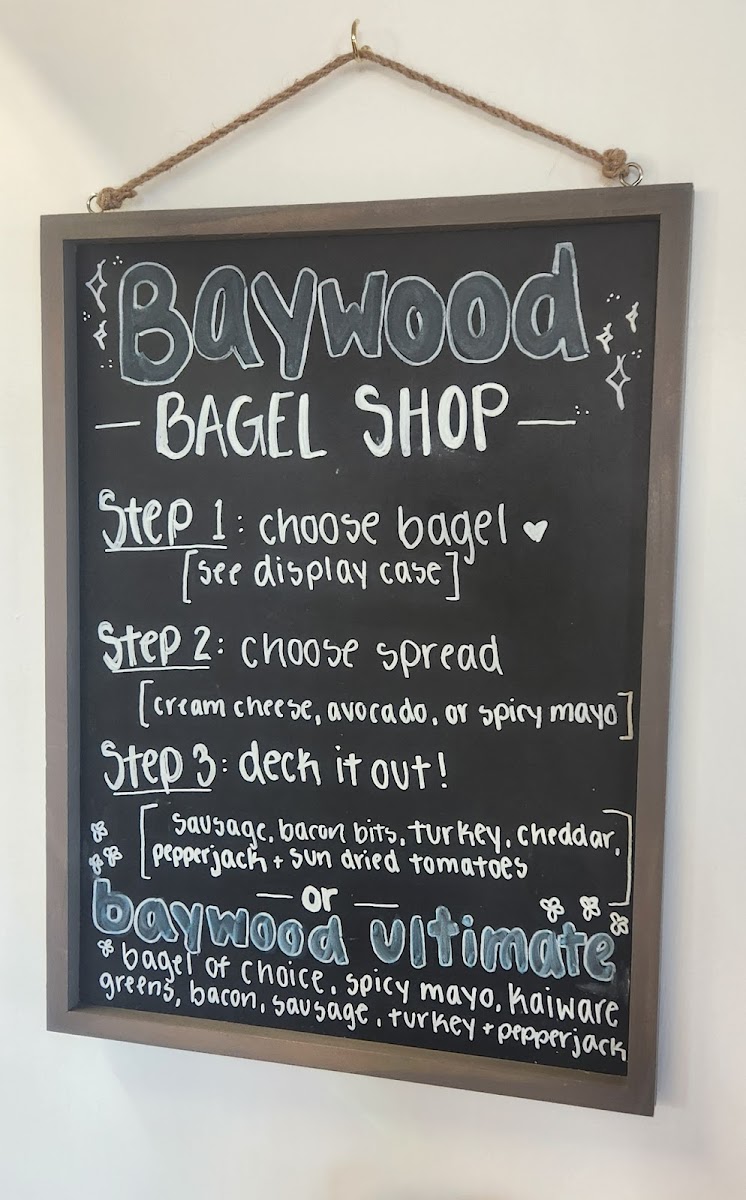 Baywood
— BAGEL SHOP —
Step 1: choose bagel ♥
[see display case]
Step 2: choose spread
[cream cheese, avocado, or spicy mayo]
Step 3: deck it out!
[sausage, bacon bits, turkey, cheddar,
pepperjack + sun dried tomatoes]
— or —
baywood ultimate
* bagel of choice, spicy mayo, Kaiware
greens, bacon, sausage, turkey + pepperjack